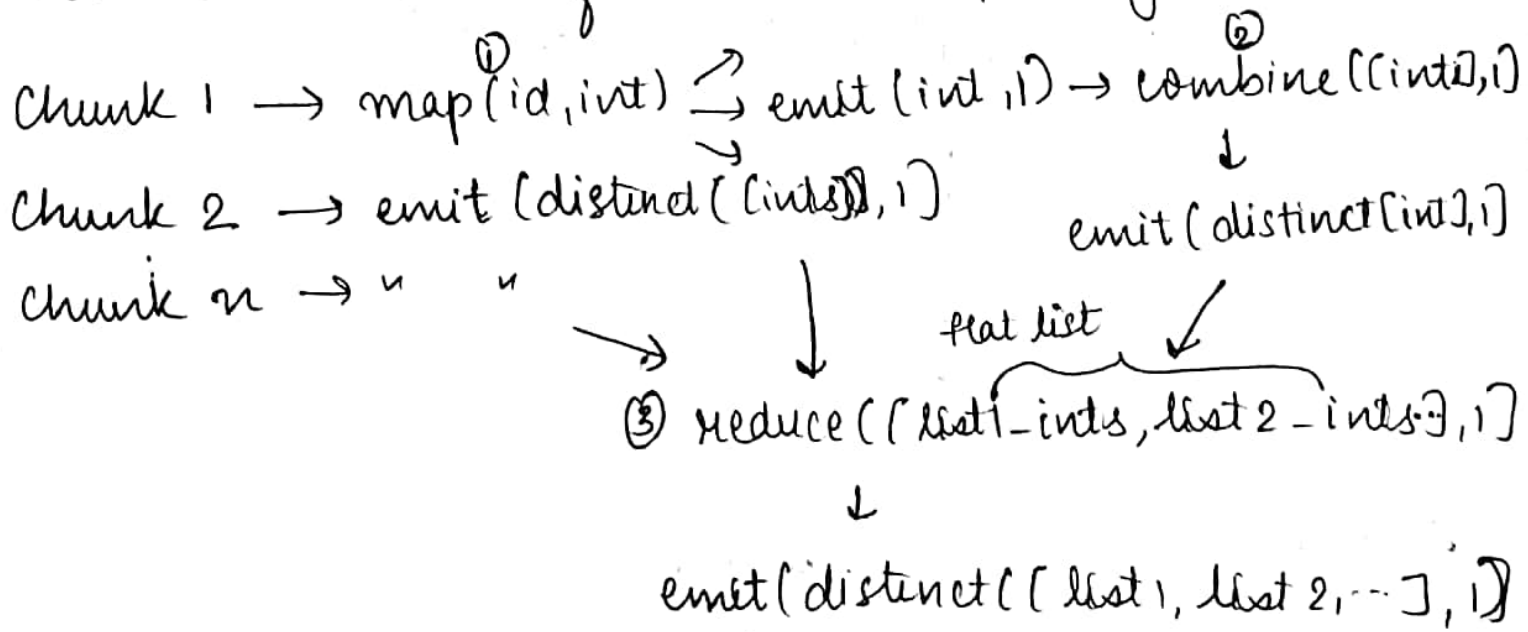 ①
②
Chunk 1 → map(id,int) → emit(int,1) → combine([int],1)
↓
Chunk 2 → emit(distinct([ints]),1)
emit(distinct[int],1)
Chunk n → " "
flat list
③ reduce([list1_ints, list2_ints..],1)
↓
emit(distinct([list1, list2,...],1)